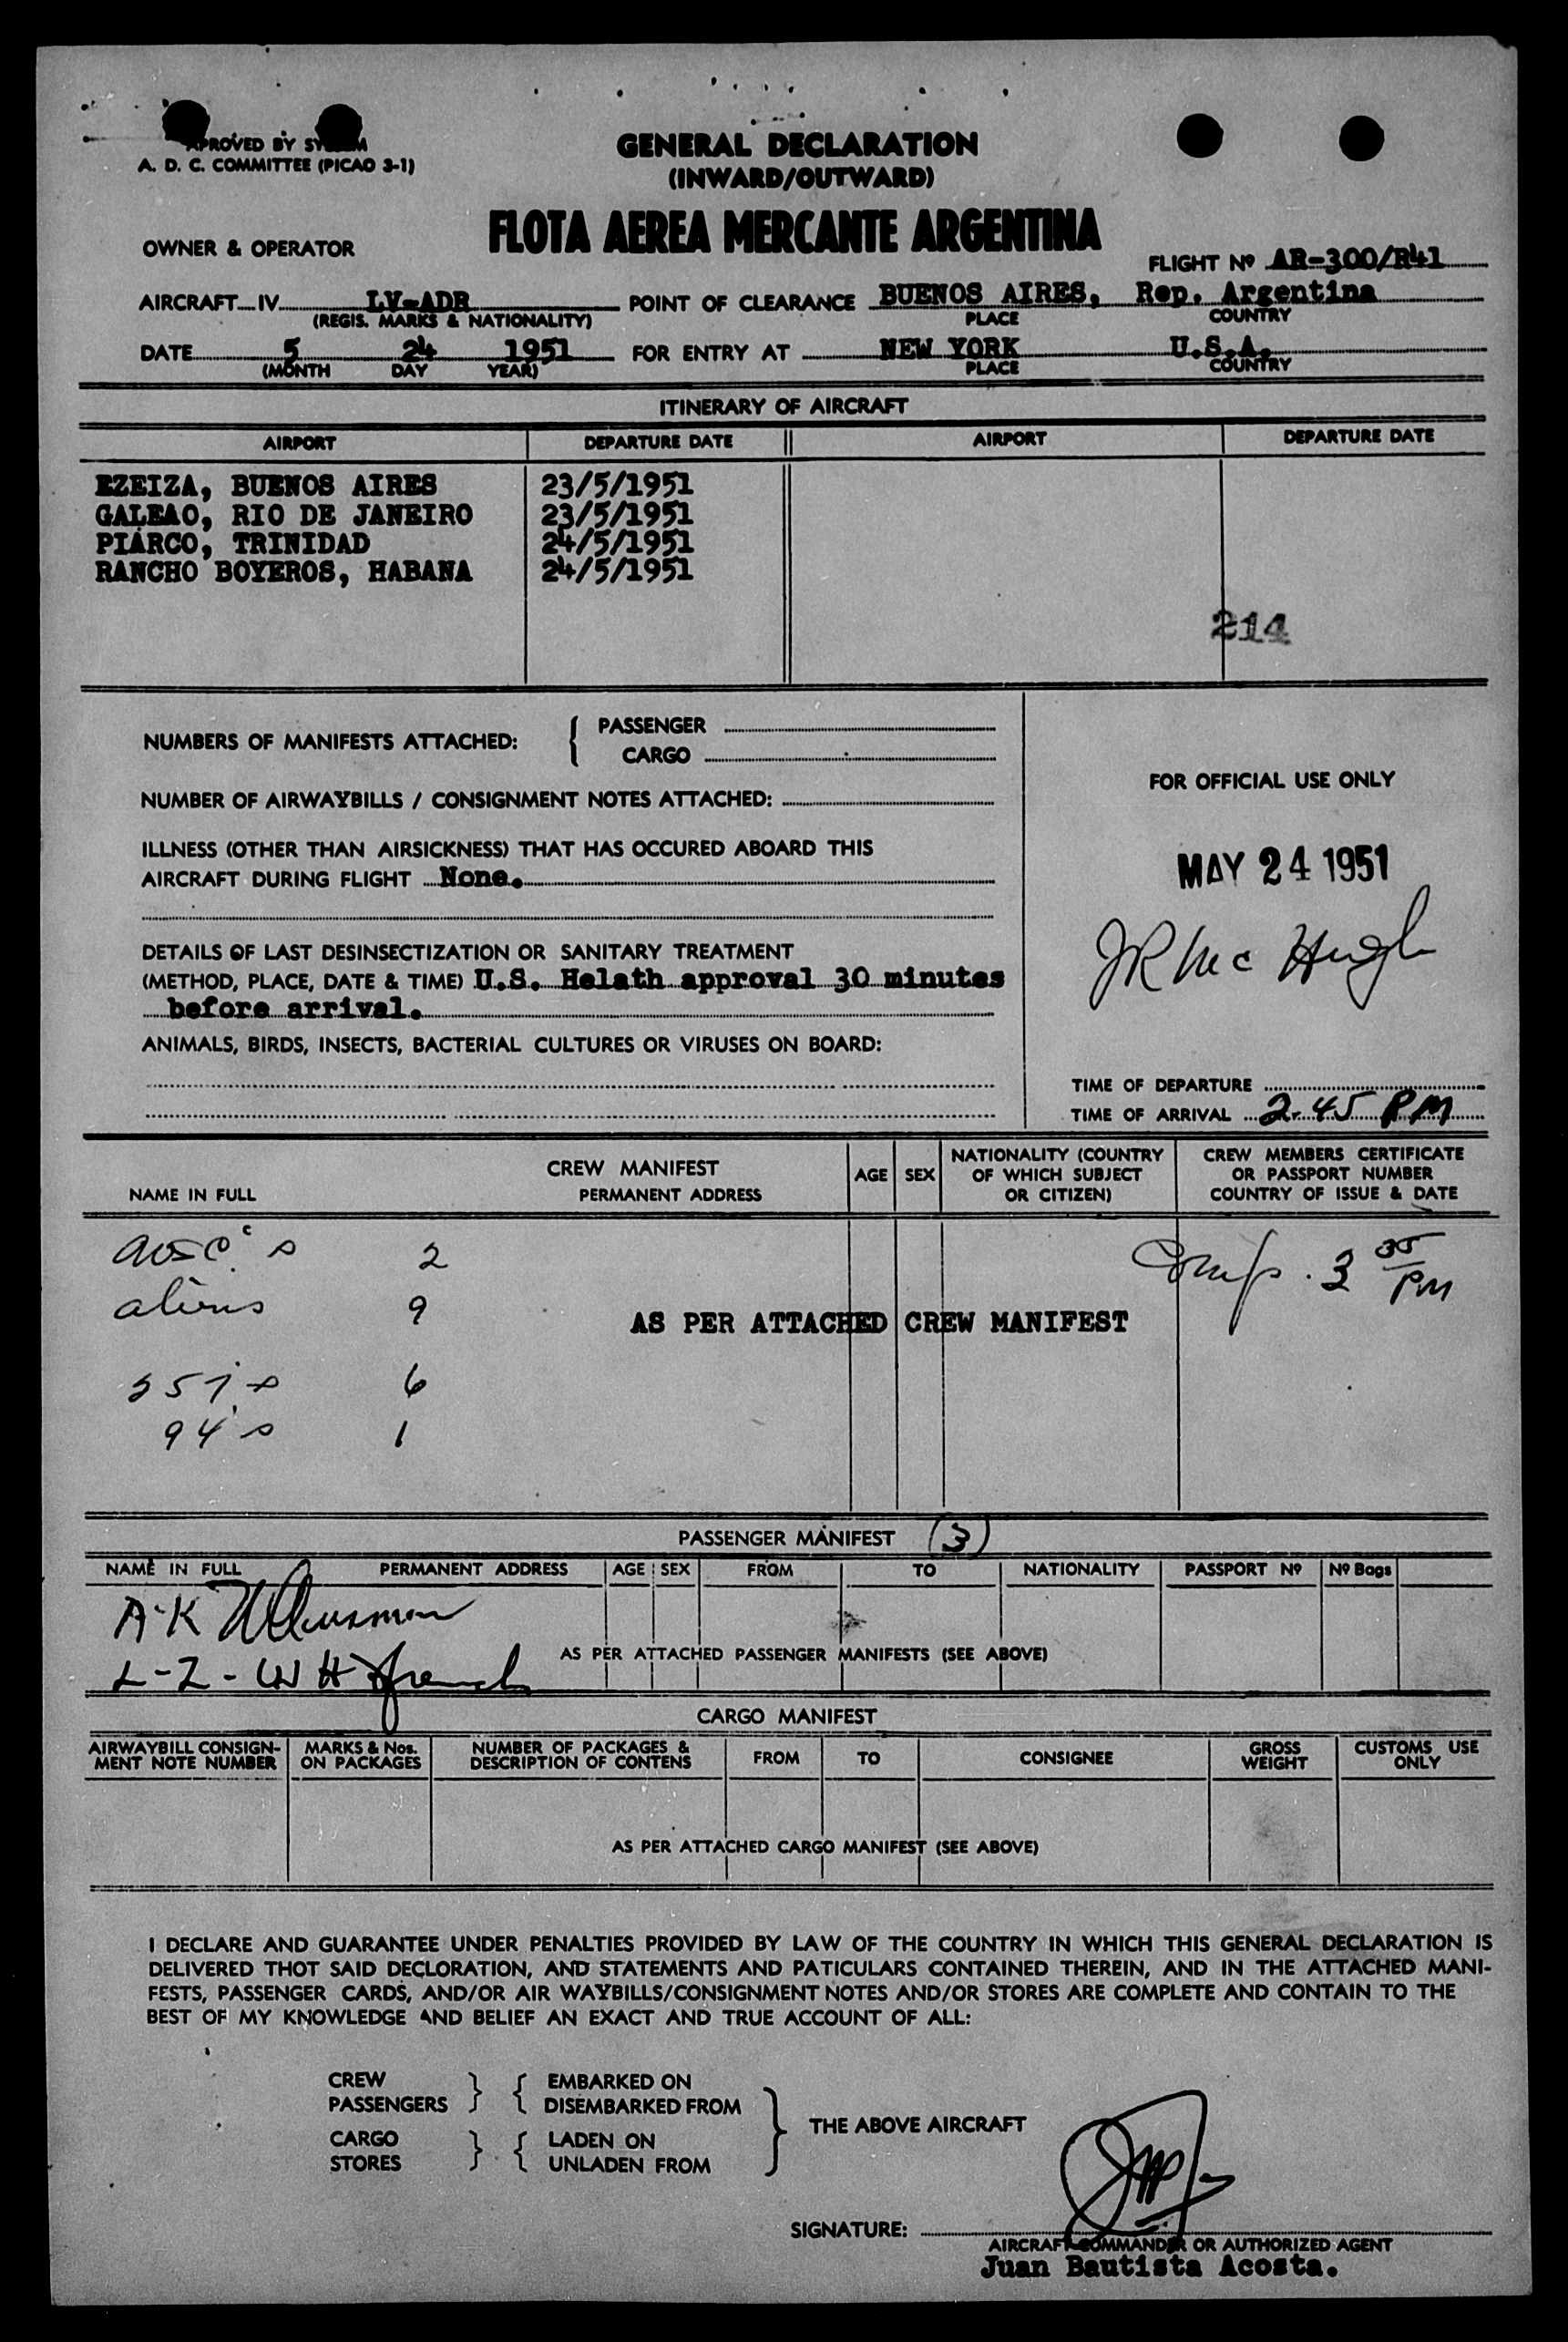 APROVED BY
A. D. C. COMMITTEE (PICAO 3-1)
GENERAL DECLARATION
(INWARD/OUTWARD)
FLOTA AEREA MERCANTE ARGENTINA
OWNER & OPERATOR
FLIGHT Nº AR-300/R41
AIRCRAFT IV LV-ADR POINT OF CLEARANCE BUENOS AIRES, Rep. Argentina
(REGIS. MARKS & NATIONALITY) PLACE COUNTRY
DATE 5 24 1951 FOR ENTRY AT NEW YORK U.S.A.
(MONTH DAY YEAR) PLACE COUNTRY
ITINERARY OF AIRCRAFT
AIRPORT DEPARTURE DATE AIRPORT DEPARTURE DATE
EZEIZA, BUENOS AIRES 23/5/1951
GALEAO, RIO DE JANEIRO 23/5/1951
PIARCO, TRINIDAD 24/5/1951
RANCHO BOYEROS, HABANA 24/5/1951
214
NUMBERS OF MANIFESTS ATTACHED: { PASSENGER
CARGO
FOR OFFICIAL USE ONLY
NUMBER OF AIRWAYBILLS / CONSIGNMENT NOTES ATTACHED:
ILLNESS (OTHER THAN AIRSICKNESS) THAT HAS OCCURED ABOARD THIS
AIRCRAFT DURING FLIGHT None.
MAY 24 1951
JR Mc Hugh
DETAILS OF LAST DESINSECTIZATION OR SANITARY TREATMENT
(METHOD, PLACE, DATE & TIME) U.S. Helath approval 30 minutes
before arrival.
ANIMALS, BIRDS, INSECTS, BACTERIAL CULTURES OR VIRUSES ON BOARD:
TIME OF DEPARTURE
TIME OF ARRIVAL 2.45 PM
CREW MANIFEST
NAME IN FULL PERMANENT ADDRESS AGE SEX NATIONALITY (COUNTRY OF WHICH SUBJECT OR CITIZEN) CREW MEMBERS CERTIFICATE OR PASSPORT NUMBER COUNTRY OF ISSUE & DATE
2
Comp. 3 35 PM
aliens 9
AS PER ATTACHED CREW MANIFEST
257's 6
94's 1
PASSENGER MANIFEST (3)
NAME IN FULL PERMANENT ADDRESS AGE SEX FROM TO NATIONALITY PASSPORT Nº Nº Bags
A-K
AS PER ATTACHED PASSENGER MANIFESTS (SEE ABOVE)
L-Z - WH French
CARGO MANIFEST
AIRWAYBILL CONSIGN-MENT NOTE NUMBER MARKS & Nos. ON PACKAGES NUMBER OF PACKAGES & DESCRIPTION OF CONTENS FROM TO CONSIGNEE GROSS WEIGHT CUSTOMS USE ONLY
AS PER ATTACHED CARGO MANIFEST (SEE ABOVE)
I DECLARE AND GUARANTEE UNDER PENALTIES PROVIDED BY LAW OF THE COUNTRY IN WHICH THIS GENERAL DECLARATION IS
DELIVERED THOT SAID DECLORATION, AND STATEMENTS AND PATICULARS CONTAINED THEREIN, AND IN THE ATTACHED MANI-
FESTS, PASSENGER CARDS, AND/OR AIR WAYBILLS/CONSIGNMENT NOTES AND/OR STORES ARE COMPLETE AND CONTAIN TO THE
BEST OF MY KNOWLEDGE AND BELIEF AN EXACT AND TRUE ACCOUNT OF ALL:
CREW } { EMBARKED ON
PASSENGERS } { DISEMBARKED FROM
THE ABOVE AIRCRAFT
CARGO } { LADEN ON
STORES } { UNLADEN FROM
SIGNATURE:
AIRCRAFT COMMANDER OR AUTHORIZED AGENT
Juan Bautista Acosta.